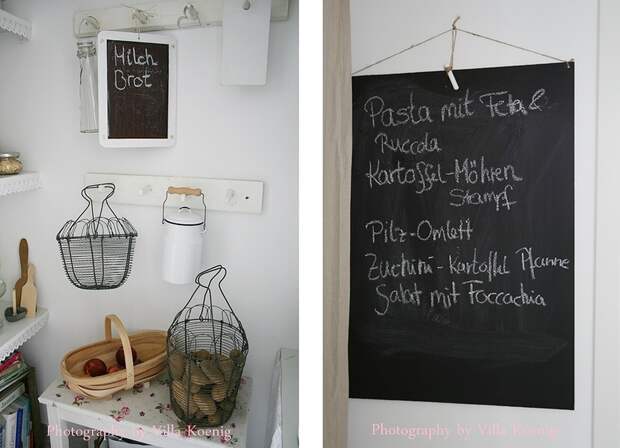 Milch
Brot
Photography by Villa Koenig
Pasta mit Feta &
Ruccola
Kartoffel-Möhren
Stampf
Pilz-Omlett
Zuchini-Kartoffel Pfanne
Salat mit Foccachia
Photography by Villa Koenig